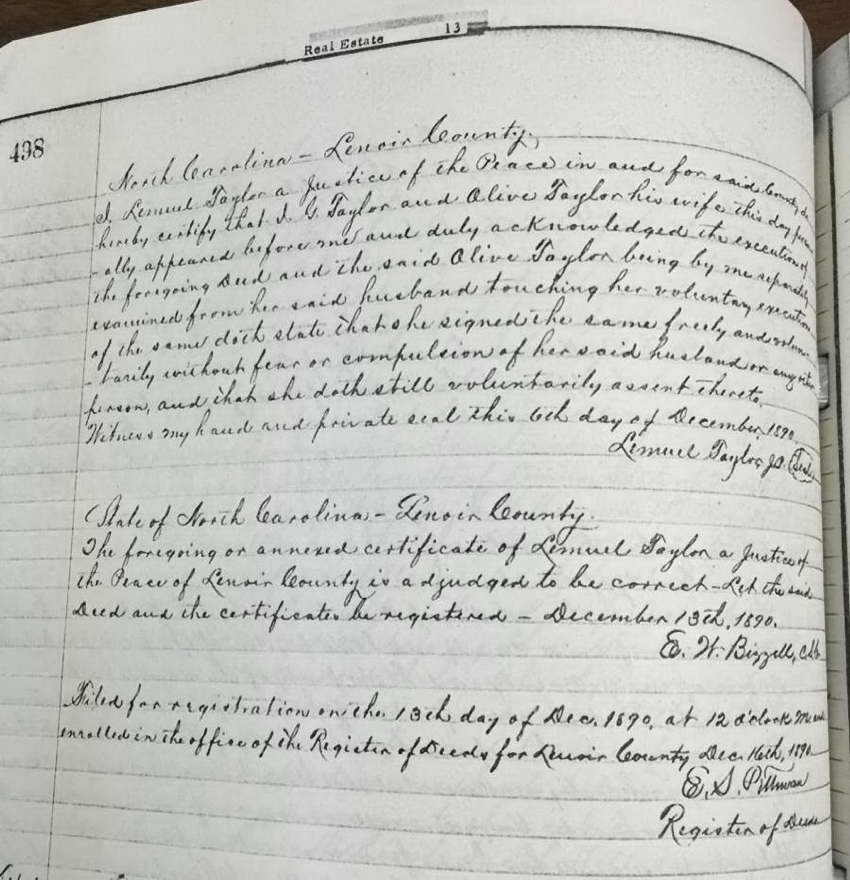 Real Estate 13
498
North Carolina - Lenoir County.
I, Lemuel Taylor a Justice of the Peace in and for said County do
hereby certify that I. G. Taylor and Olive Taylor his wife this day person
-ally appeared before me and duly acknowledged the execution of
the foregoing Deed and the said Olive Taylor being by me seperately
examined from her said husband touching her voluntary execution
of the same doth state that she signed the same freely and volun
-tarily without fear or compulsion of her said husband or any other
person, and that she doth still voluntarily assent thereto.
Witness my hand and private seal this 6th day of December, 1890.
Lemuel Taylor, J.P. (Seal)
State of North Carolina - Lenoir County.
The foregoing or annexed certificate of Lemuel Taylor a Justice of
the Peace of Lenoir County is adjudged to be correct - Let the said
Deed and the certificates be registered - December 13th, 1890.
E. W. Bizzell, CSC
Filed for registration on the 13th day of Dec. 1890, at 12 o'clock M and
enrolled in the office of the Register of Deeds for Lenoir County Dec. 16th, 1890
E. S. Pittman
Register of Deeds